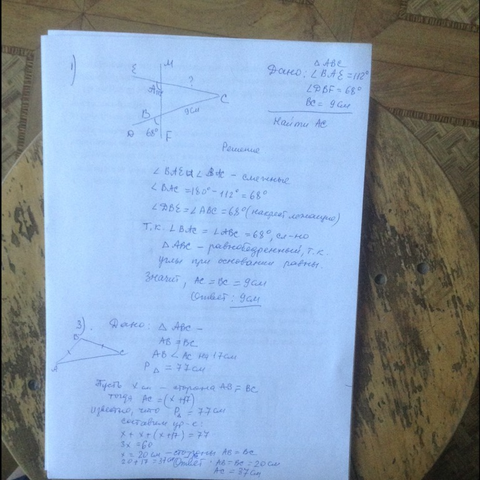 1)
E
M
A
?
C
9 см
B
D
68°
F
△ ABC
Дано: ∠BAE = 112°
∠DBF = 68°
BC = 9 см
Найти AC
Решение
∠BAE и ∠BAC – смежные
∠BAC = 180° - 112° = 68°
∠DBF = ∠ABC = 68°
Т.к. ∠BAC = ∠ABC = 68°, сл-но
△ABC – равнобедренный, т.к.
углы при основании равны
Значит, AC = BC = 9 см
Ответ: 9 см
3). Дано: △ ABC –
B
C
A
AB = BC
AB < AC на 17 см
P△ = 77 см
Пусть x см – сторона AB = BC
тогда AC = (x+17)
известно, что P△ = 77 см
составим ур-е:
x + x + (x+17) = 77
3x = 60
x = 20 см – стороны AB = BC
20 + 17 = 37 см
Ответ: AB = BC = 20 см
AC = 37 см